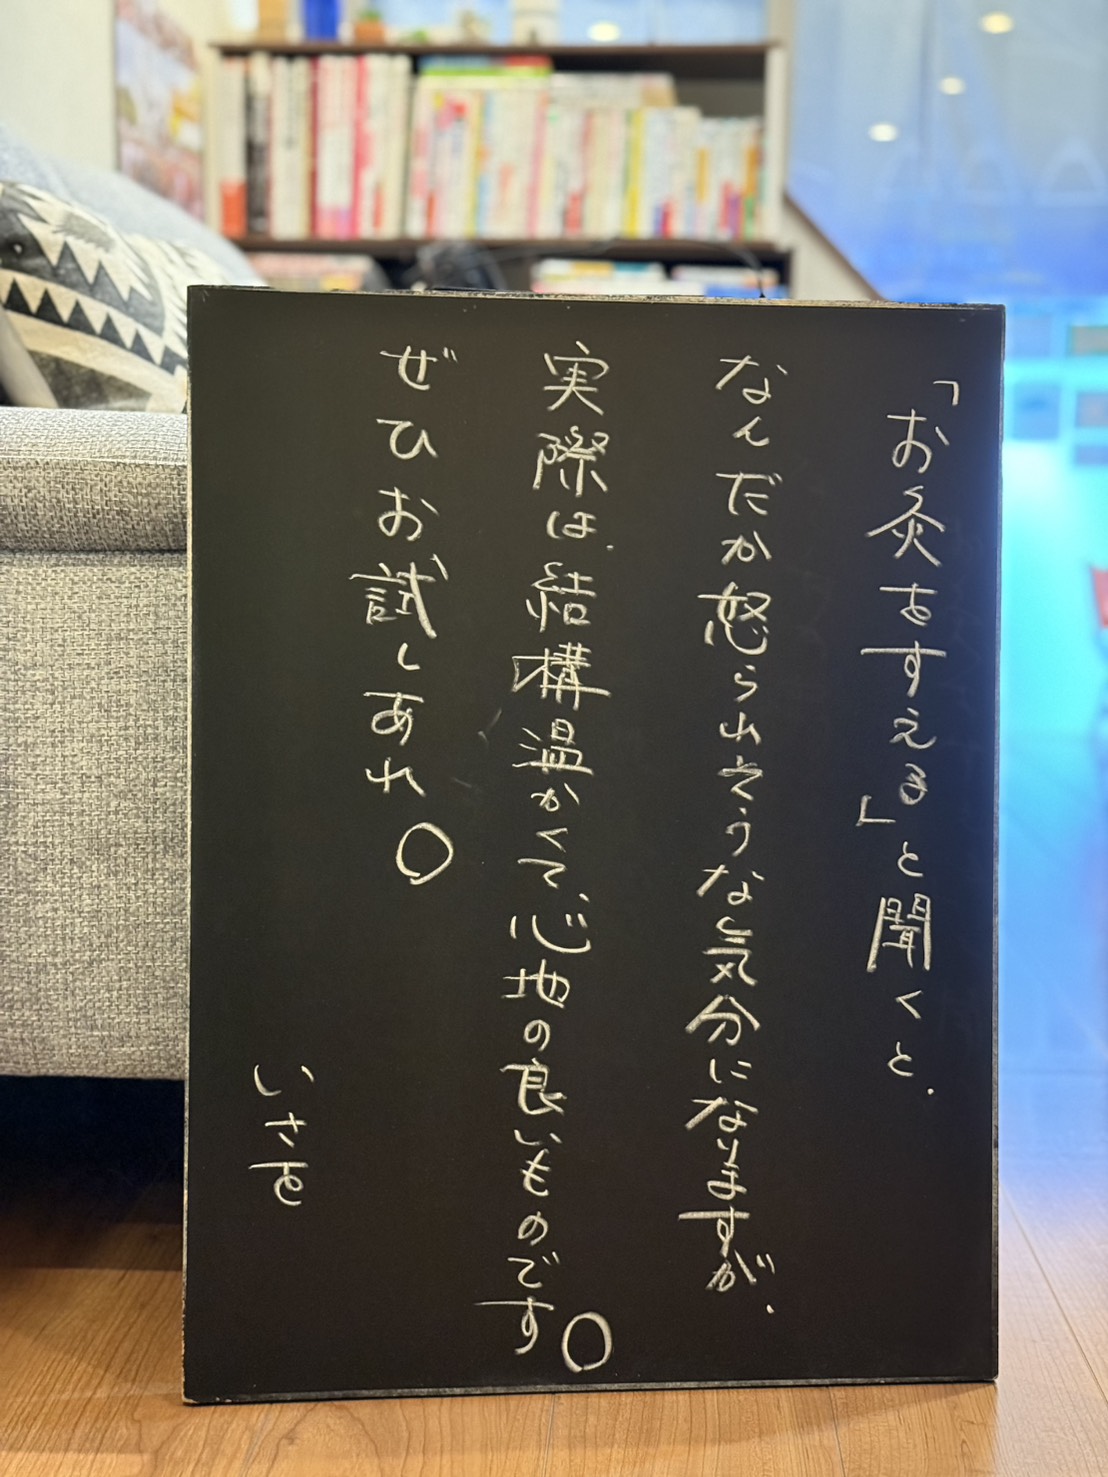 「お灸をすえる」と聞くと、
なんだか怒られそうな気分になりますが、
実際は、結構温かくて、心地の良いものです。
ぜひお試しあれ。
いさを